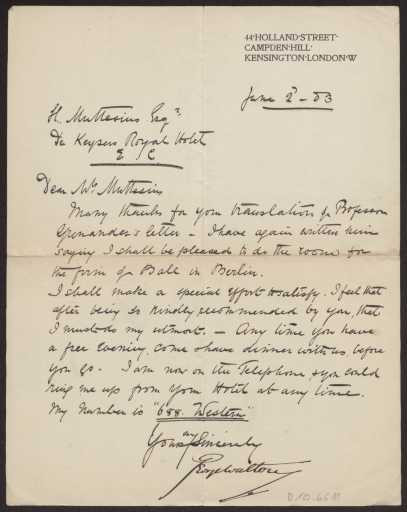 44·HOLLAND·STREET·
CAMPDEN·HILL·
KENSINGTON·LONDON·W
June 2ᵈ - 03
H. Muttesius Esqʳ
De Keysers Royal Hotel
E C.
Dear Mʳ Muttesius
Many thanks for your translation of Professor
Grenander's letter - I have again written him
saying I shall be pleased to do the room for
the firm of Ball in Berlin.
I shall make a special effort to satisfy. I feel that
after being so kindly recommended by you, that
I must do my utmost. - Any time you have
a free evening, come & have dinner with us, before
you go. I am now on the Telephone & you could
ring me up from your Hotel at any time.
My Number is "688. Western"
Yours Sincerely
George Walton
D 10. 6611